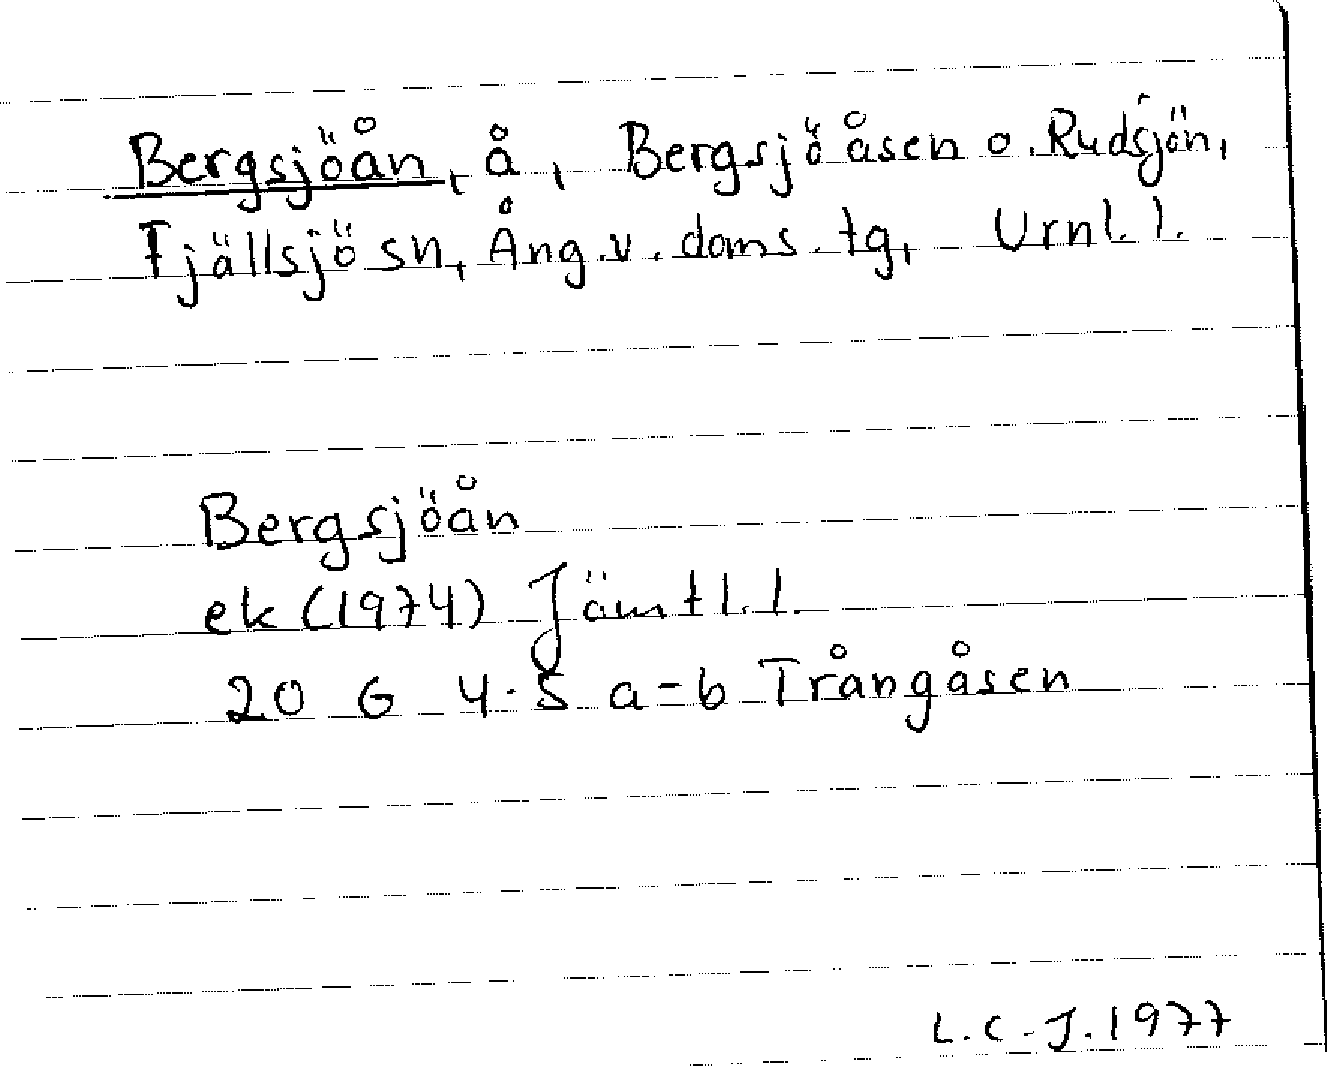 Bergsjöån, å, Bergsjöåsen o. Rudsjön,
Fjällsjö sn, Ång.v. doms. tg, Vrnl. l.
Bergsjöån
ek (1974) Jämtl. l.
20 G 4-5 a=b Trångåsen
L.C-J. 1977